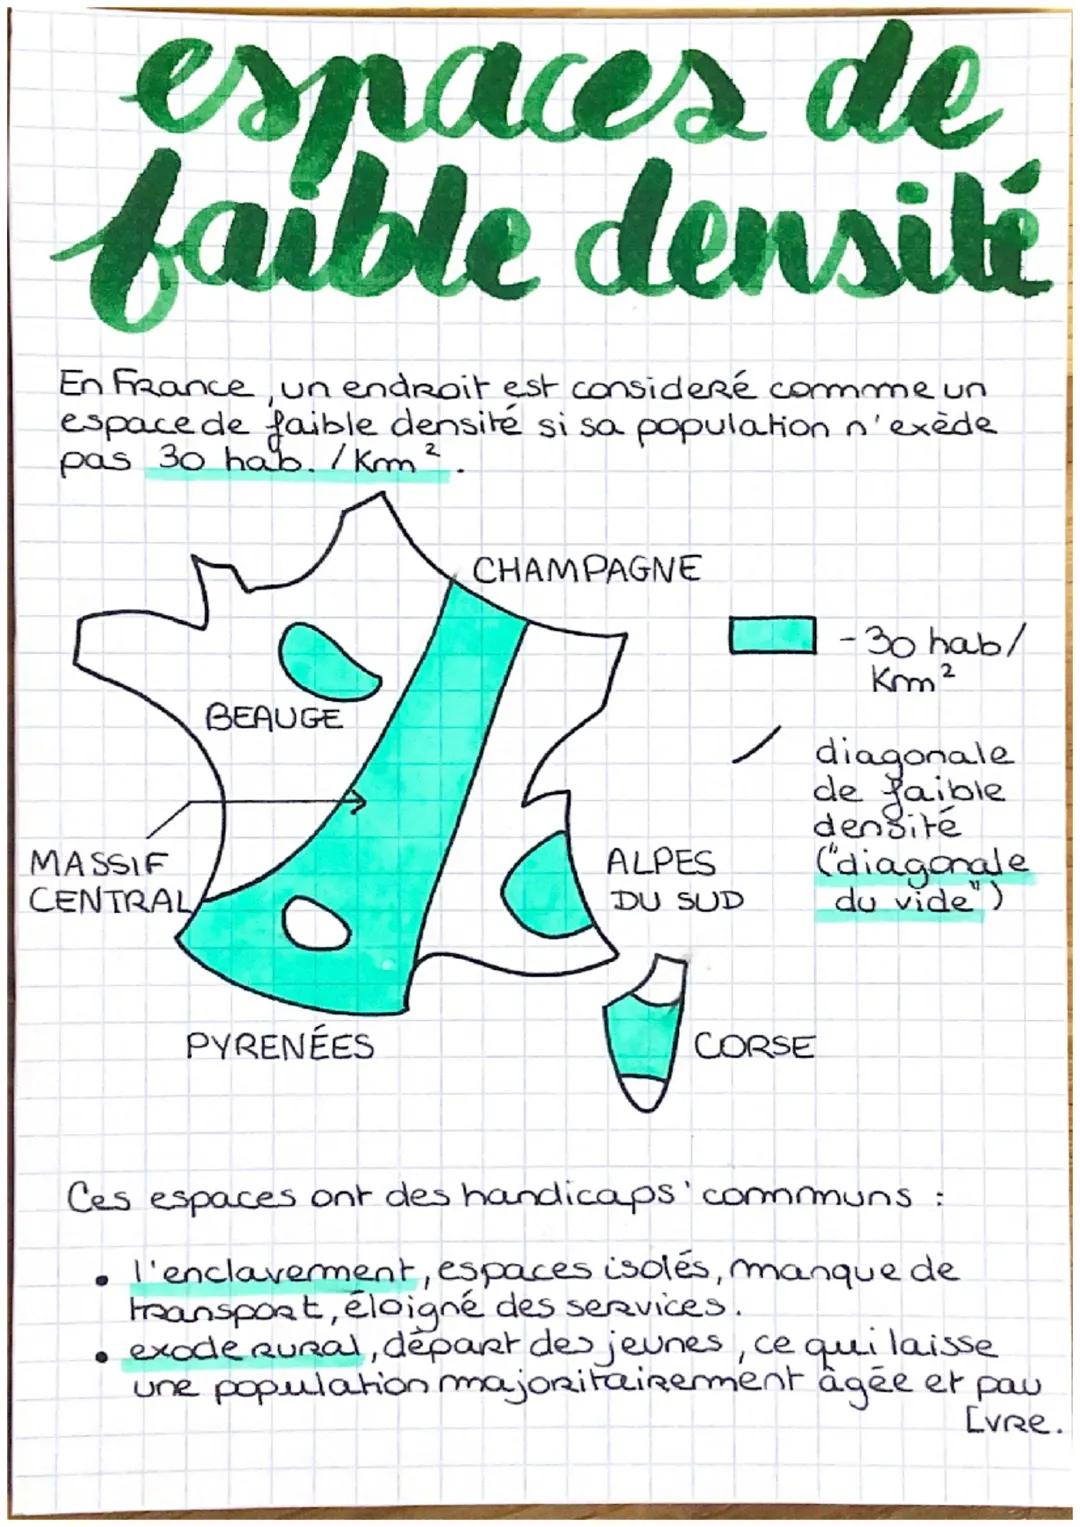 espaces de
faible densité
En France, un endroit est consideré commme un
espace de faible densité si sa population n'exède
pas 30 hab. / Km².
CHAMPAGNE
- 30 hab/
Km²
BEAUGE
diagonale
de faible
densité
("diagonale
du vide")
MASSIF
CENTRAL
ALPES
DU SUD
PYRENÉES
CORSE
Ces espaces ont des handicaps communs :
• l'enclavement, espaces isolés, manque de
transport, éloigné des services.
• exode rural, départ des jeunes, ce qui laisse
une population majoritairement âgée et pau
[vre.